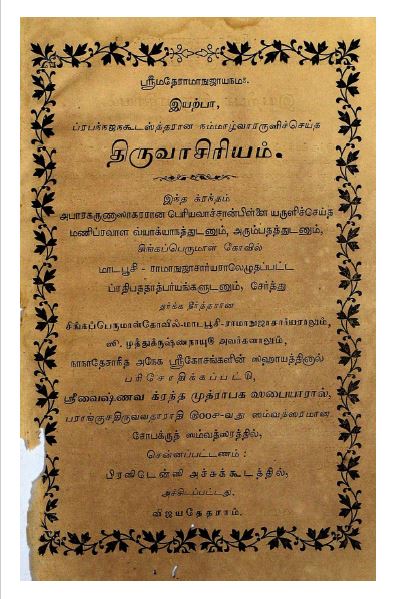 ஸ்ரீமதேராமாநுஜாயநம:.
இயற்பா,
ப்ரபந்நஜநகூடஸ்த்தரான நம்மாழ்வாரருளிச்செய்த
திருவாசிரியம்.
இந்த க்ரந்தம்
அபாரகருணாஸாகரரான பெரியவாச்சான்பிள்ளை யருளிச்செய்த
மணிப்ரவாள வ்யாக்யாநத்துடனும், அரும்பதத்துடனும்,
சிங்கப்பெருமாள் கோவில்
மாடபூசி - ராமாநுஜாசார்யராலெழுதப்பட்ட
ப்ரதிபததாத்பர்யங்களுடனும், சேர்த்து
தர்க்க தீர்த்தரான
சிங்கப்பெருமாள்கோவில்-மாடபூசி-ராமாநுஜாசார்யராலும்,
முத்துக்ருஷ்ணநாயுடு அவர்களாலும்,
நாநாதேசாரீத அநேக ஸ்ரீகோசங்களின் ஸஹாயத்தினால்
பரிசோதிக்கப்பட்டு,
ஸ்ரீவைஷ்ணவ க்ரந்த முத்ராபக ஸபையாரால்,
பராங்குசதிருவவதாராதி ஸம்வத்ஸரமான
சோபக்ருத் ஸம்வத்ஸரத்தில்,
சென்னப்பட்டணம் :
பிரஸிடென்ஸி அச்சுக்கூடத்தில்,
அச்சிடப்பட்டது.
விஜயதேதராம்.